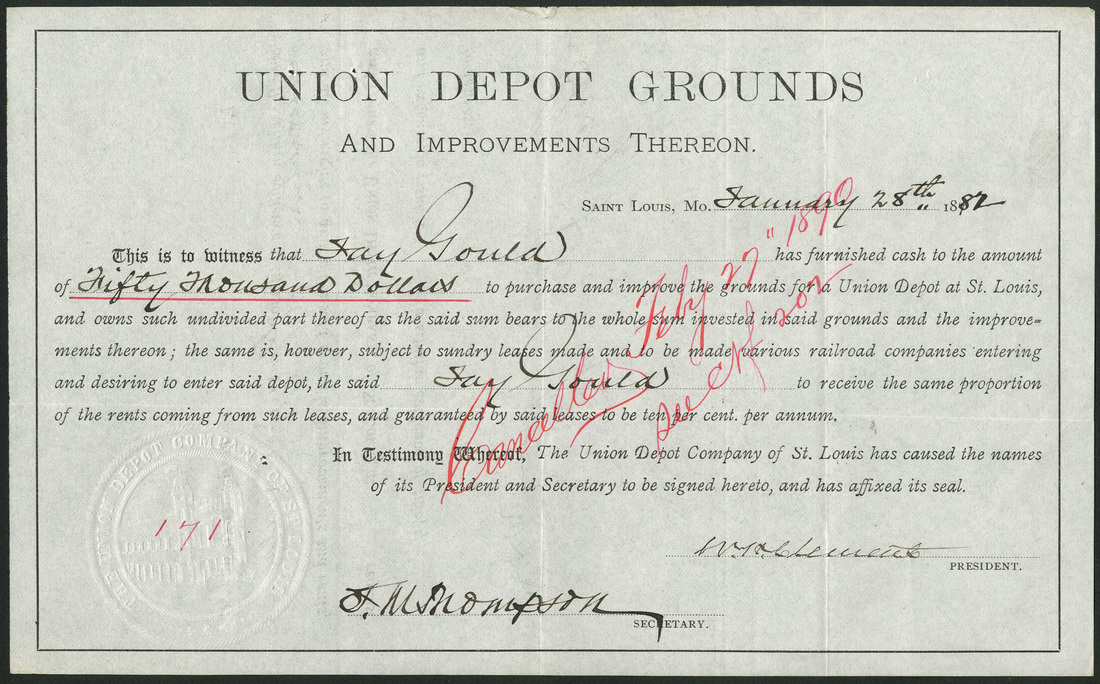 UNION DEPOT GROUNDS
AND IMPROVEMENTS THEREON.
SAINT LOUIS, MO. January 28th 1882
This is to witness that Jay Gould has furnished cash to the amount
of Fifty Thousand Dollars to purchase and improve the grounds for a Union Depot at St. Louis,
and owns such undivided part thereof as the said sum bears to the whole sum invested in said grounds and the improve-
ments thereon; the same is, however, subject to sundry leases made and to be made various railroad companies entering
and desiring to enter said depot, the said Jay Gould to receive the same proportion
of the rents coming from such leases, and guaranteed by said leases to be ten per cent. per annum.
Cancelled Feby 27" 1890
see Ctf 202
In Testimony Whereof, The Union Depot Company of St. Louis has caused the names
of its President and Secretary to be signed hereto, and has affixed its seal.
THE UNION DEPOT COMPANY OF ST. LOUIS
171
W. H. Clement
PRESIDENT.
J. M. Thompson
SECRETARY.